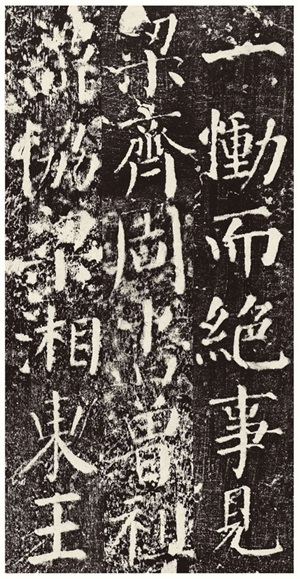 一慟而絶事見
梁齊周書曾祖
諱協梁湘東王